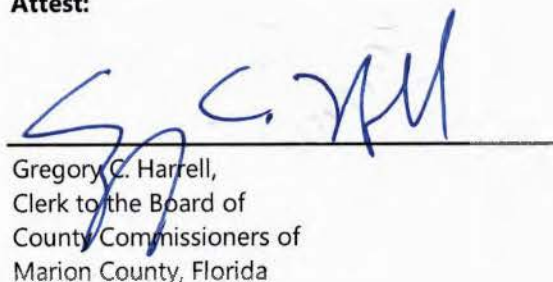 Attest:
Gregory C. Harrell,
Clerk to the Board of
County Commissioners of
Marion County, Florida